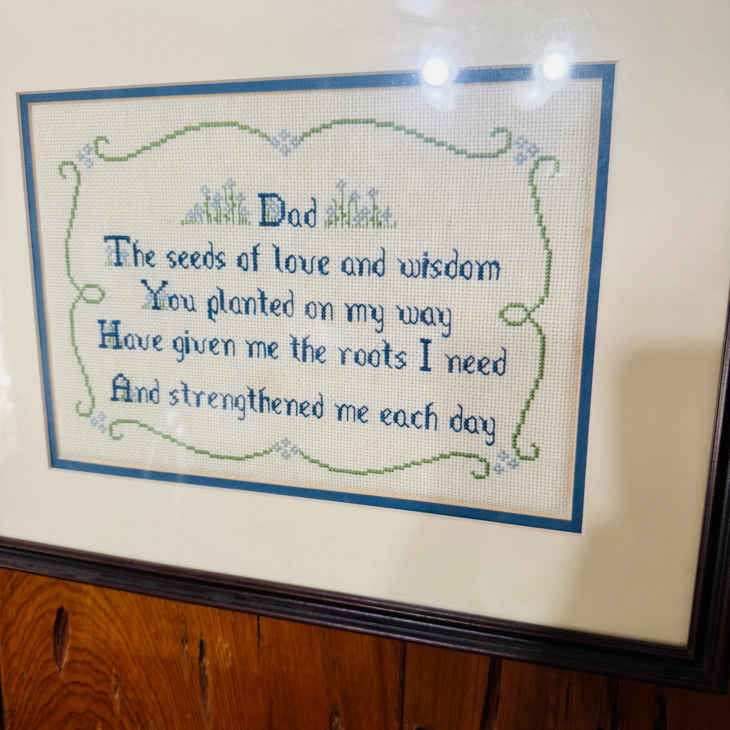 Dad
The seeds of love and wisdom
You planted on my way
Have given me the roots I need
And strengthened me each day